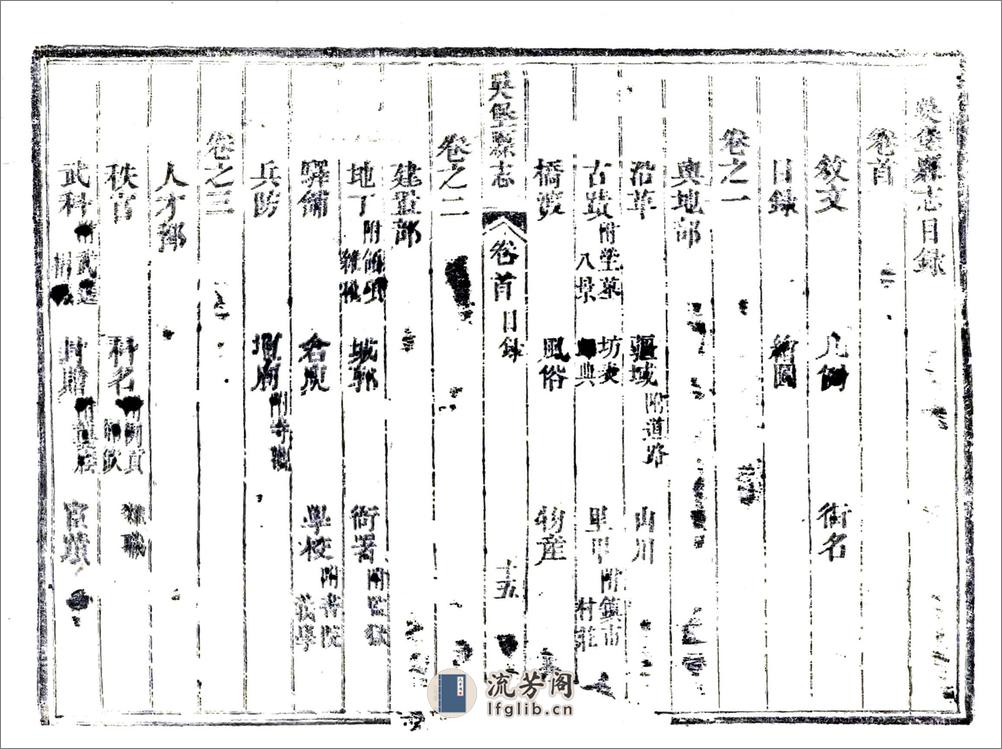 吳堡縣志目録
卷首
敘文 凡例 銜名
目録 繪圖
卷之一
輿地部
沿革 疆域附道路 山川
古蹟附塋墓八景 坊表 典 里甲附鎮市村莊
橋渡 風俗 物産
吳堡縣志 卷首 目録 十五
卷之二
建置部
地丁附 雜 城郭 衙署附監獄
驛鋪 倉庾 學校附書院義學
兵防 壇廟附寺觀
卷之三
人才部
秩官 科名 職
武科附武 封贈 宦蹟
流芳阁
lfglib.cn